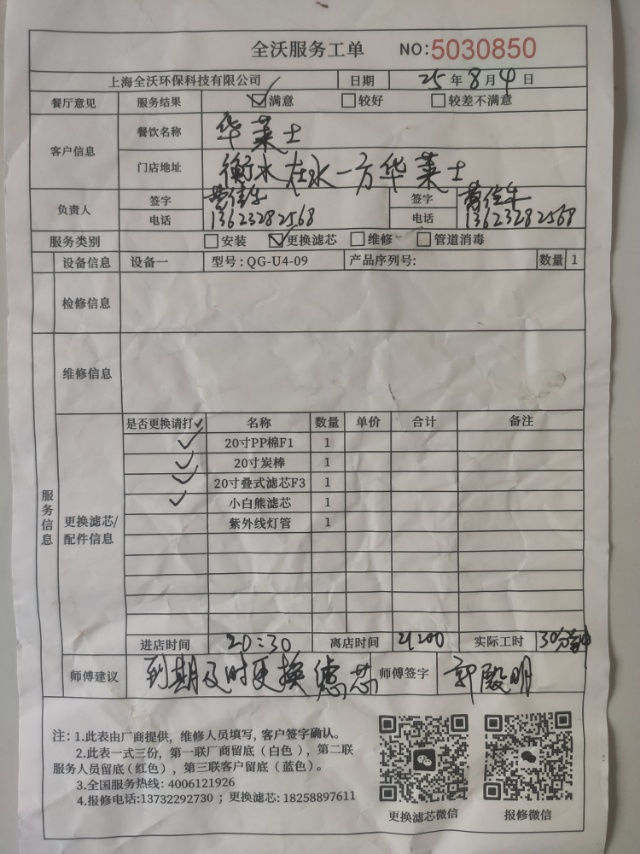 全沃服务工单 NO:5030850
上海全沃环保科技有限公司 日期 25年8月4日
餐厅意见 服务结果 ☑满意 □较好 □较差不满意
客户信息 餐饮名称 华莱士
门店地址 衡水在水一方华莱士
负责人 签字 签字
电话 13623282568 电话 13623282568
服务类别 □安装 ☑更换滤芯 □维修 □管道消毒
设备信息 设备一 型号:QG-U4-09 产品序列号: 数量 1
检修信息
维修信息
服务信息
更换滤芯/配件信息
是否更换请打✓ 名称 数量 单价 合计 备注
✓ 20寸PP棉F1 1
✓ 20寸炭棒 1
✓ 20寸叠式滤芯F3 1
✓ 小白熊滤芯 1
紫外线灯管 1
进店时间 20:30 离店时间 21:00 实际工时 30分钟
师傅建议 到期及时更换滤芯 师傅签字 郭殿明
注: 1.此表由厂商提供，维修人员填写, 客户签字确认。
2.此表一式三份，第一联厂商留底（白色），第二联
服务人员留底(红色)，第三联客户留底（蓝色）。
3.全国服务热线: 4006121926
4.报修电话:13732292730 ；更换滤芯: 18258897611
更换滤芯微信 报修微信